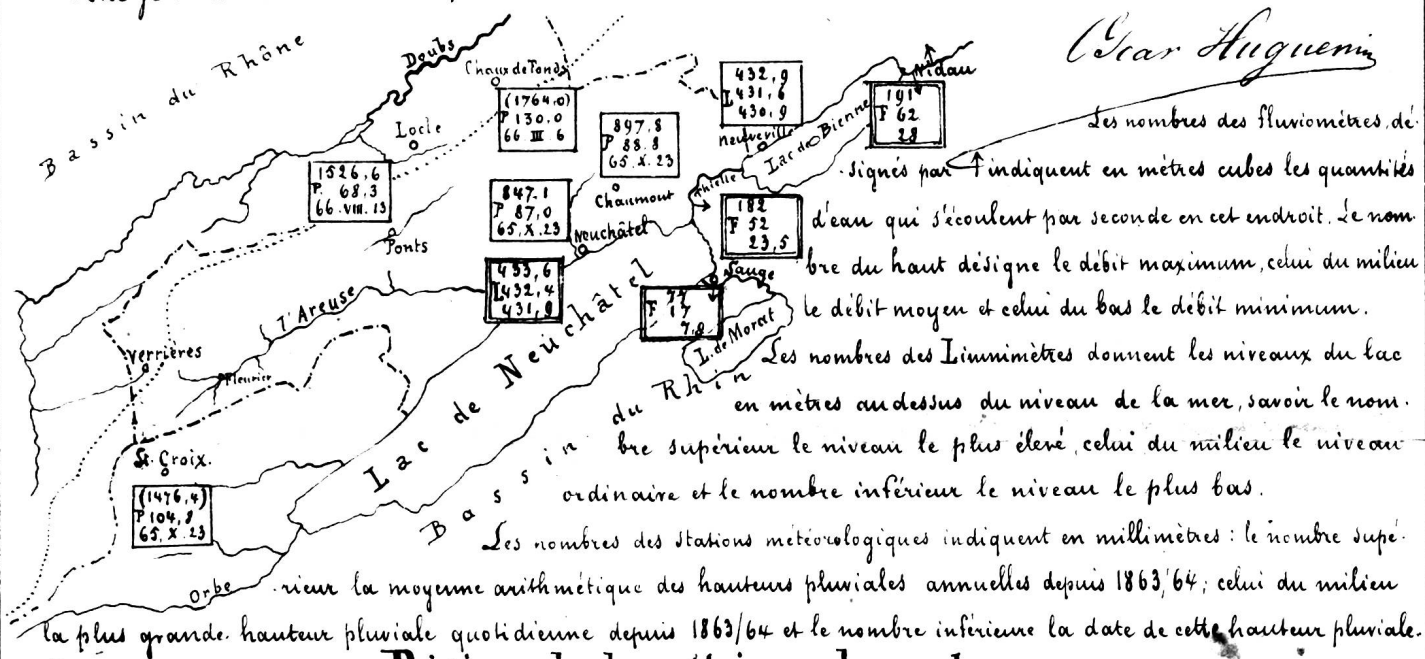 Bassin du Rhône
Doubs
Chaux de Fonds
(1764,0)
P 130,0
66 III 6
Locle
1526,6
P. 68,3
66. VIII. 13
897,8
P 88.8
65. X. 23
Chaumont
847.1
P 87,0
65, X. 23
Neuchâtel
Ponts
433,6
L 432,4
431,8
432,9
L 431,6
430,9
Neuveville
Lac de Bienne
Nidau
191
F 62
28
Thielle
182
F 52
23,5
Sauge
77
F 17
7,8
L. de Morat
l'Areuse
Verrières
Fleurier
St. Croix.
(1476,4)
P 104,8
65. X. 23
Orbe
Lac de Neuchâtel
Bassin du Rhin
Oscar Huguenin
Les nombres des fluviomètres, dé-
signés par indiquent en mètres cubes les quantités
d'eau qui s'écoulent par seconde en cet endroit. Le nom-
bre du haut désigne le débit maximum, celui du milieu
le débit moyen et celui du bas le débit minimum.
Les nombres des Limnimètres donnent les niveaux du lac
en mètres au dessus du niveau de la mer, savoir le nom-
bre supérieur le niveau le plus élevé, celui du milieu le niveau
ordinaire et le nombre inférieur le niveau le plus bas.
Les nombres des stations météorologiques indiquent en millimètres : le nombre supé-
rieur la moyenne arithmétique des hauteurs pluviales annuelles depuis 1863/64; celui du milieu
la plus grande hauteur pluviale quotidienne depuis 1863/64 et le nombre inférieure la date de cette hauteur pluviale.